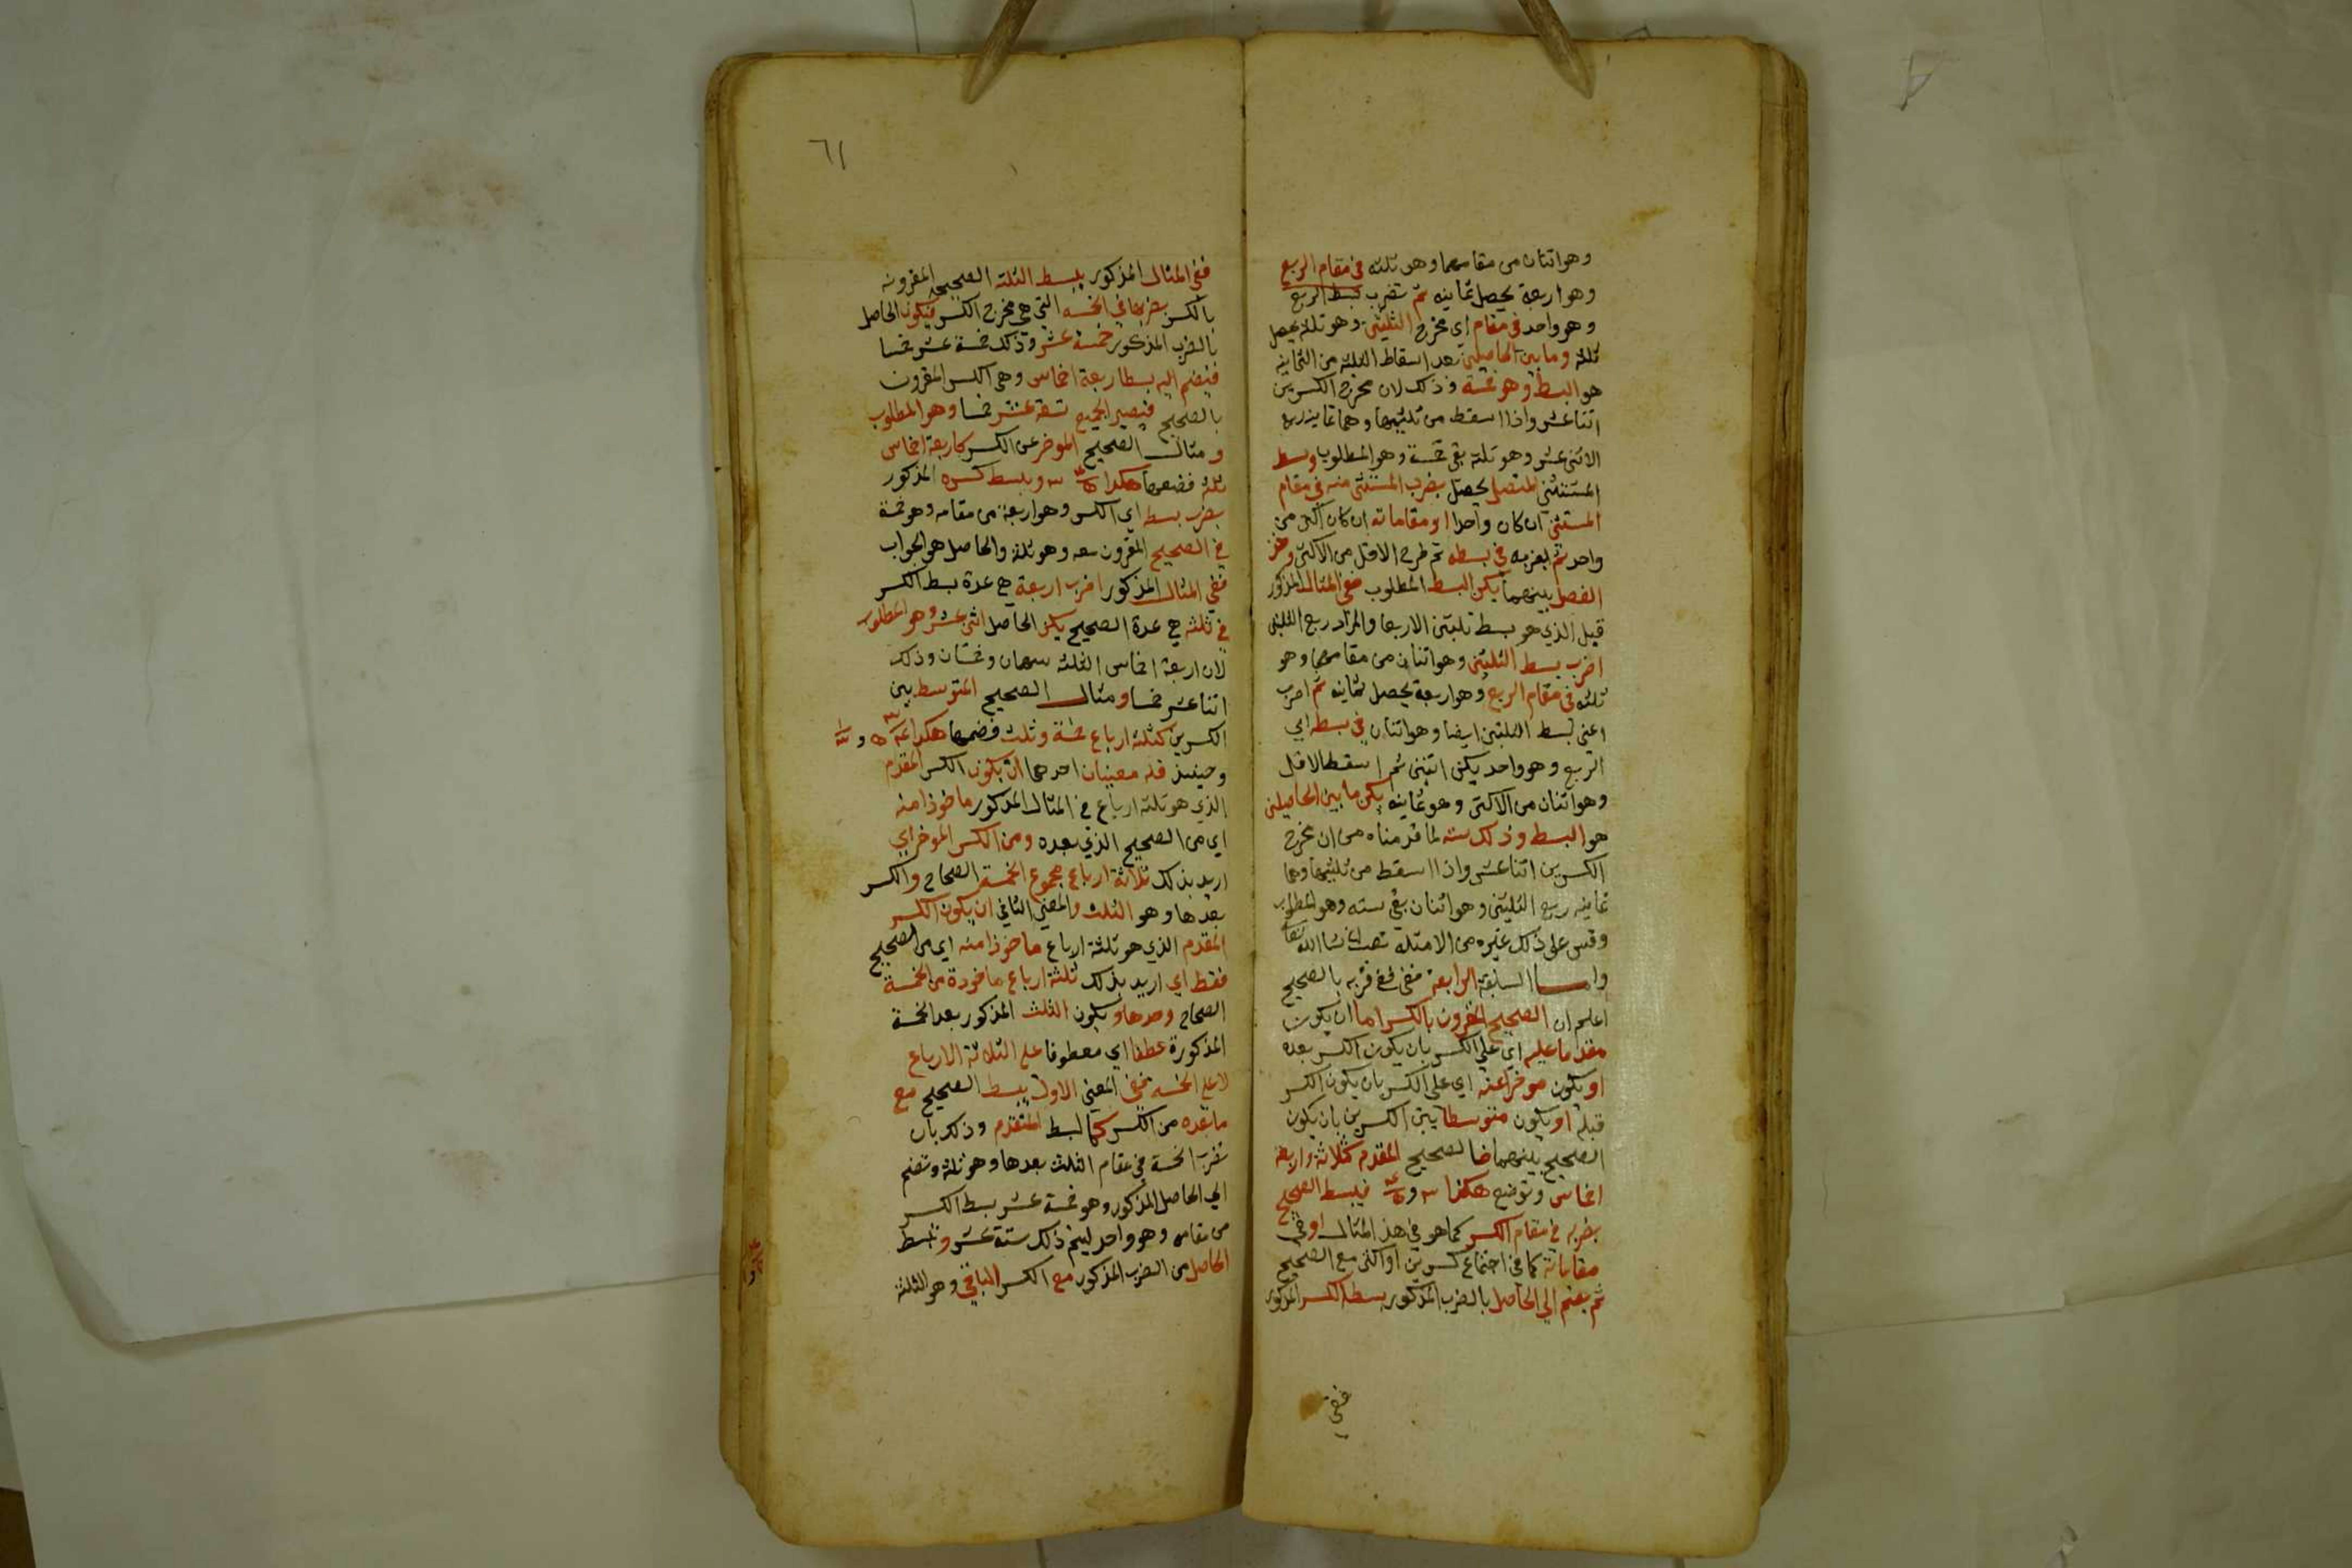 وهو اثنان من مقامهما وهو ثلثه في مقام الربع
وهو اربعة يحصل ثمانيه ثم تضرب بسط الربع
وهو واحد في مقام اي مخرج الثلثين وهو ثلثة يحصل
ثلثه وما بين الحاصلين بعد اسقاط الثلثه من الثمانيه
هو البسط وهو خمسة وذلك لان مخرج الكسرين
اثنا عشر واذا اسقط من ثلثيهما وهما ثمانيه ربع
الاثني عشر وهو ثلثه بقي خمسة وهو المطلوب وبسط
المستثنى المتصل يحصل بضرب المستثنى منه في مقام
المستثنى ان كان واحدا او مقاماته ان كان اكثر من
واحد ثم بضربه في بسطه ثم طرح الاقل من الاكثر وخذ
الفضل بينهما يكن البسط المطلوب ففي المثال المذكور
قبل الذي هو بسط ثلثين الا ربعا والمراد ربع الثلثين
اضرب بسط الثلثين وهو اثنان من مقامهما وهو
ثلثه في مقام الربع وهو اربعة يحصل ثمانيه ثم اضرب
اعني بسط الثلثين ايضا وهو اثنان في بسطه اي
الربع وهو واحد يكن اثنين ثم اسقط الاقل
وهو اثنان من الاكثر وهو ثمانيه يكن ما بين الحاصلين
هو البسط وذلك سته لما قدمناه من ان مخرج
الكسرين اثنا عشر واذا اسقط من ثلثيهما وهما
ثمانيه ربع الثلثين وهو اثنان بقي سته وهو المطلوب
وقس على ذلك غيره من الامثلة تصب ان شا الله تعا
واما السابقة الرابعة ففي قربه بالصحيح
اعلم ان الصحيح المقرون بالكسر اما ان يكون
مقدما عليه اي على الكسر بان يكون الكسر بعده
او يكون موخرا عنه اي على الكسر بان يكون الكسر
قبله او يكون متوسطا بين الكسرين بان يكون
الصحيح بينهما فالصحيح المقدم كثلاثة واربعة
اخماس وتوضع هكذا ٣ و ٤/٥ فيبسط الصحيح
بضربه في مقام الكسر كما هو في هذا المثال او في
مقاماته كما في اجتماع كسرين او اكثر مع الصحيح
ثم يضم الى الحاصل بالضرب المذكور بسط الكسر المذكور
ففي
٦١
ففي المثال المذكور يبسط الثلثه الصحيحه المقرونه
بالكسر بضربها في الخمسه التي هي مخرج الكسر فيكون الحاصل
بالضرب المذكور خمسة عشر وذلك خمسة عشر خمسا
فيضم اليه بسط اربعة اخماس وهي الكسر المقرون
بالصحيح فيصير الجميع تسعة عشر خمسا وهو المطلوب
ومثال الصحيح الموخر عن الكسر كاربعة اخماس
ثلثه فضعها هكذا ٤/٥ ٣ وبسط كسره المذكور
بضرب بسطه اي الكسر وهو اربعة من مقامه وهو خمسة
في الصحيح المقرون معه وهو ثلثة والحاصل هو الجواب
ففي المثال المذكور اضرب اربعة هي عدة بسط الكسر
في ثلثه هي عدة الصحيح يكن الحاصل اثني عشر وهو المطلوب
لان اربعة اخماس الثلثه سهمان وخمسان وذلك
اثنا عشر خمسا ومثال الصحيح المتوسط بين
الكسرين كثلثه ارباع خمسة وثلث فضعها هكذا ٣/٤ ٥ و ١/٣
وحينئذ فله معنيان احدهما ان يكون الكسر المقدم
الذي هو ثلثه ارباع في المثال المذكور ماخوذا منه
اي من الصحيح الذي بعده ومن الكسر الموخر اي
اريد بذلك ثلاثة ارباع مجموع الخمسة الصحاح والكسر
بعدها وهو الثلث والمعنى الثاني ان يكون الكسر
المقدم الذي هو ثلثة ارباع ماخوذا منه اي من الصحيح
فقط اي اريد بذلك ثلثة ارباع ماخوذة من الخمسة
الصحاح وحدها ويكون الثلث المذكور بعد الخمسة
المذكورة عطفا اي معطوفا على الثلاثة الارباع
لا على الخمسه ففي المعنى الاول يبسط الصحيح مع
ما بعده من الكسر كما لبسط المتقدم وذلك بان
تضرب الخمسة في مقام الثلث بعدها وهو ثلثة وتضم
الى الحاصل المذكور وهو خمسة عشر بسط الكسر
من مقامه وهو واحد ليتم ذلك ستة عشر وتبسط
الحاصل من الضرب المذكور مع الكسر الباقي وهو الثلثة